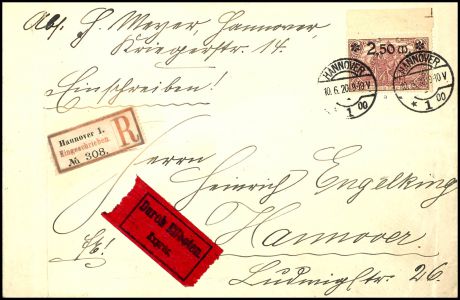 Abs. H. Meyer, Hannover,
Kriegerstr. 14.
2,50 m
HANNOVER
10.6.20.9-10V
* 1 00
HANNOVER
10.6.20.9-10V
* 1 00
Einschreiben!
Hannover 1.
Eingeschrieben.
№ 308.
R
Herrn
Heinrich Engelking
Durch Eilboten.
Exprès.
Hannover.
Ludwigstr. 26.